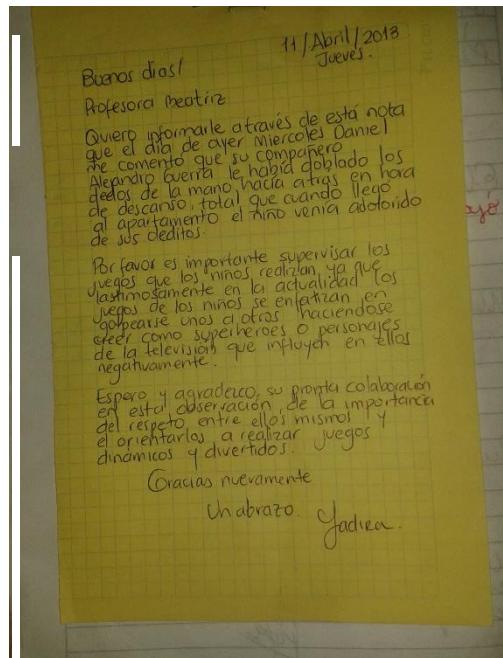 11/Abril/2013
Jueves.
Buenos dias!
Profesora Beatriz
Quiero informarle através de está nota
que el día de ayer Miercoles Daniel
me comentó que su compañero
Alejandro Guerra le había doblado los
dedos de la mano hacía atras en hora
de descanso, total que cuando llegó
al apartamento el niño venía adolorido
de sus deditos.
Por favor es importante supervisar los
juegos que los niños realizan, ya que
lastimosamente en la actualidad los
juegos de los niños se enfatizan en
golpearse unos a otros haciendose
creer como superheroes o personajes
de la televisión que influyen en ellos
negativamente.
Espero y agradezco, su pronta colaboración
en esta observación, de la importancia
del respeto entre ellos mismos y
el orientarlos a realizar juegos
dinámicos y divertidos.
Gracias nuevamente
Un abrazo. Yadira.